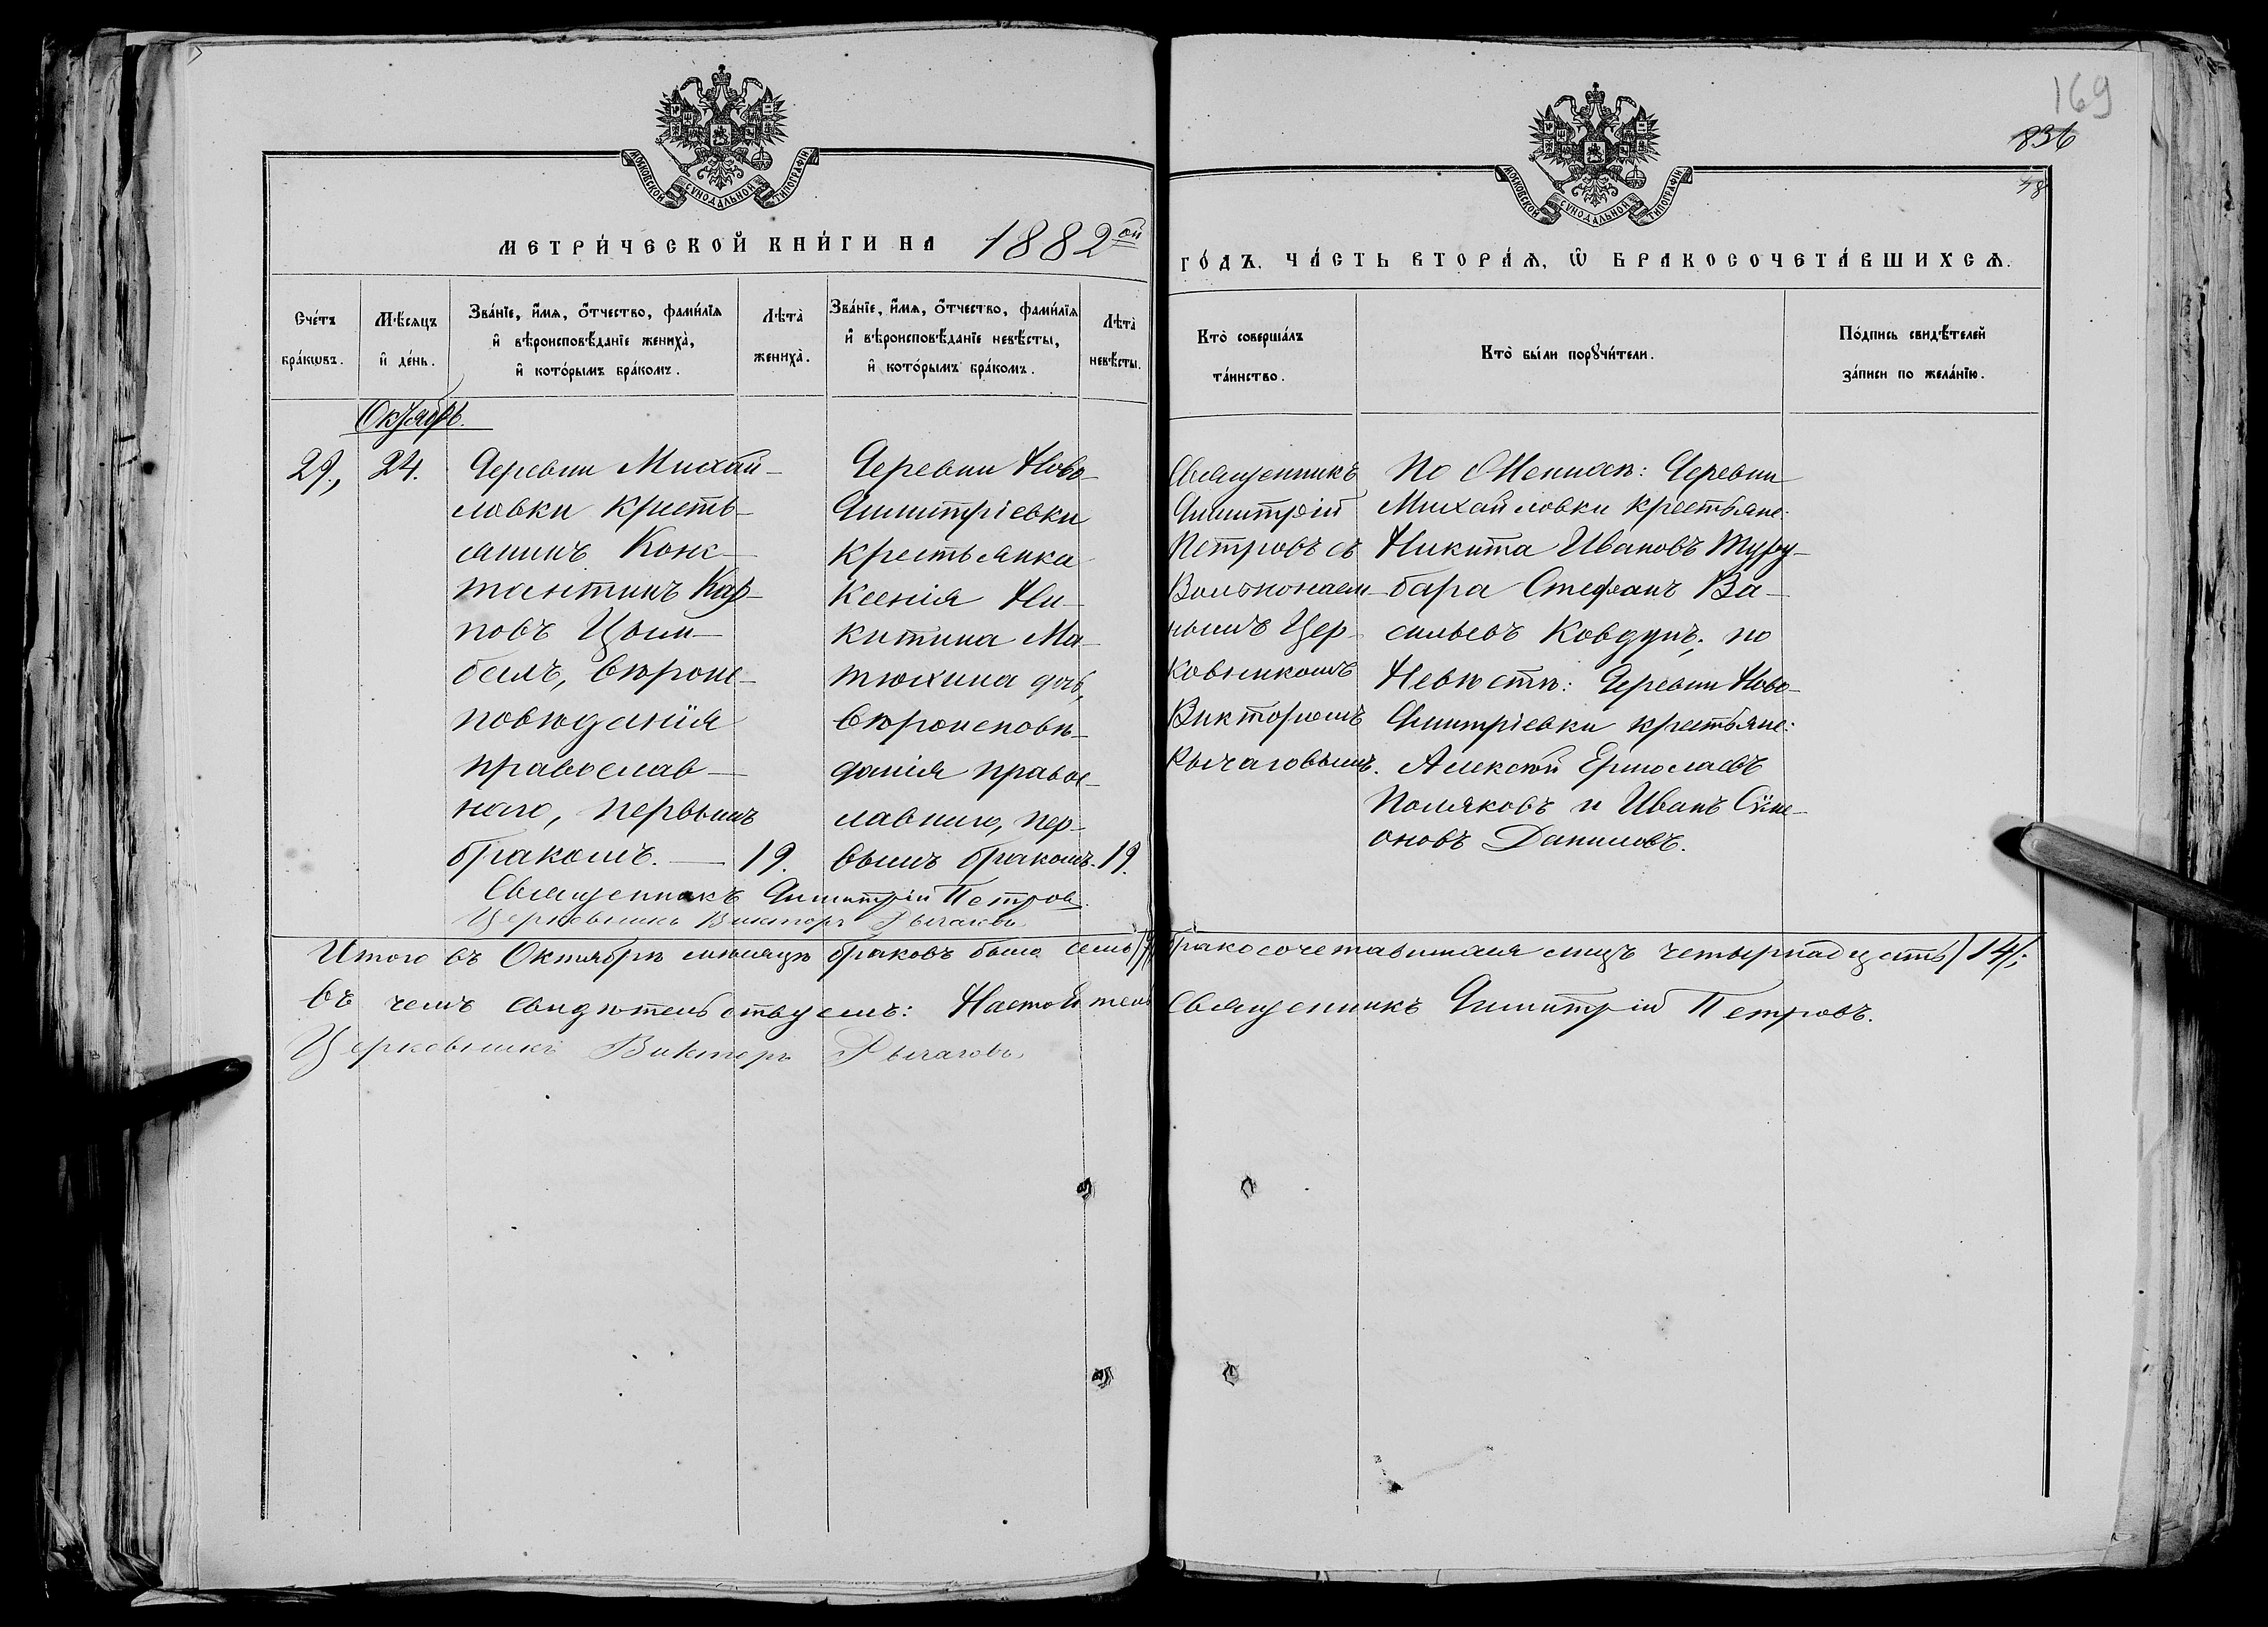 169
836
48
МОСКОВСКОЙ СУНОДАЛЬНОЙ ТИПОГРАФІИ
МОСКОВСКОЙ СУНОДАЛЬНОЙ ТИПОГРАФІИ
МЕТРИ́ЧЕСКОЙ КНИ́ГИ НА 1882ой
ГО́ДЪ. ЧА́СТЬ ВТОРА́Ѧ, Ѡ҆ БРАКОСОЧЕТА́ВШИХСѦ.
Сче́тъ
бра́кѡвъ.
Мѣ́сяцъ
и҆ де́нь.
Зва́нїе, и҆́мѧ, о҆́тчество, фами́лїѧ
и҆ вѣроисповѣ́данїе жениха̀,
и҆ кото́рымъ бра́комъ.
Лѣта̀
жениха̀.
Зва́нїе, и҆́мѧ, о҆́тчество, фами́лїѧ
и҆ вѣроисповѣ́данїе невѣ́сты,
и҆ кото́рымъ бра́комъ.
Лѣта̀
невѣ́сты.
Кто̀ соверша́лъ
та́инство.
Кто̀ бы́ли порꙋчи́тели.
По́дпись свидѣ́телей
за́писи по жела́нїю.
Октябрь.
29, 24.
Деревни Михай-
ловки кресть-
янинъ Конс-
тантинъ Кар-
повъ Цым-
балъ, вѣроис-
повѣданія
православ-
наго, первымъ
бракомъ. — 19.
Деревни Ново-
Димитріевки
крестьянка
Ксенія Ни-
китина Ма-
тюхина дочь,
вѣроисповѣ-
данія правос-
лавнаго, пер-
вымъ бракомъ. 19.
Священникъ
Димитрій
Петровъ съ
Вольнонаем-
нымъ Цер-
ковникомъ
Викторомъ
Рычаговымъ.
По Женихѣ: Деревни
Михайловки крестьяне:
Никита Ивановъ Туру-
бара Стефанъ Ва-
сильевъ Ковдунъ; по
Невѣстѣ: Деревни Ново-
Димитріевки крестьяне:
Алексѣй Ермолаевъ
Поляковъ и Иванъ Сѵме-
оновъ Даниловъ.
Священникъ Димитрій Петровъ.
Церковникъ Викторъ Рычаговъ
Итого въ Октябрѣ мѣсяцѣ браковъ было семь /7/, бракосочетавшихся лицъ четырнадцать /14/;
въ чемъ свидѣтельствуемъ: Настоятель Священникъ Димитрій Петровъ.
Церковникъ Викторъ Рычаговъ